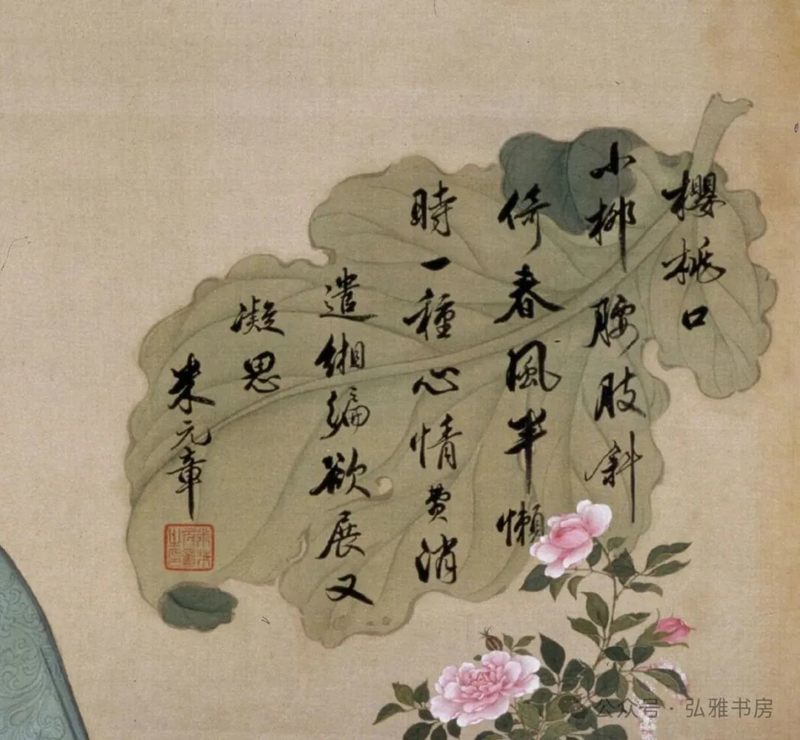 櫻桃口
小柳腰肢斜
倚春風半懶
時一種心情費消
遣緗編欲展又
凝思
米元章
公众号 · 弘雅书房